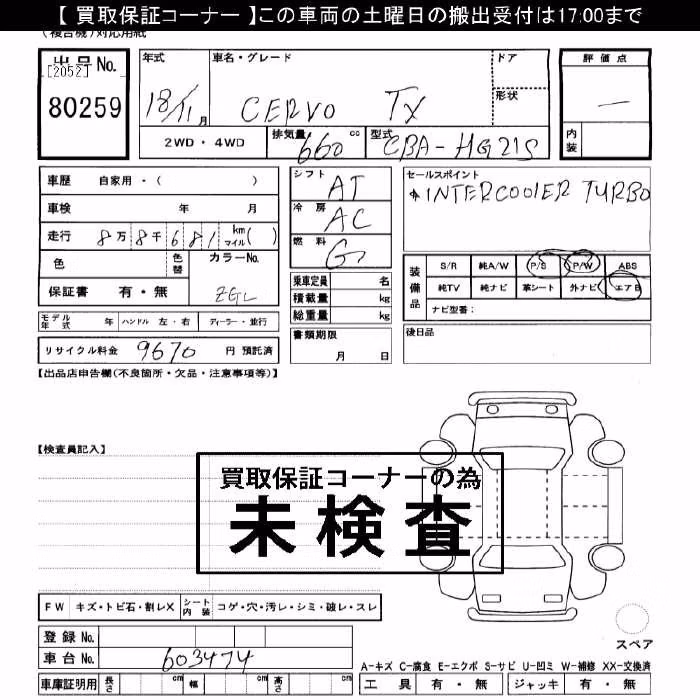 【 買取保証コーナー 】この車両の土曜日の搬出受付は17:00まで
(複合機)対応用紙
出品No. 年式 車名・グレード ドア 評価点
[2052]
80259 18/11月 CERVO TX 形状 —
2WD・4WD 排気量 660 cc 型式 CBA-HG21S 内装
車歴 自家用・( ) シフト AT セールスポイント
車検 年 月 冷房 AC INTERCOOLER TURBO
走行 8万8千681 km マイル( ) 燃料 G
色 色替 カラーNo. ZGL 乗車定員 名 装備品 S/R 純A/W P/S P/W ABS
保証書 有・無 積載量 kg 純TV 純ナビ 革シート 外ナビ エアB
総重量 kg ナビ型番:
モデル年式 年 ハンドル 左・右 ディーラー・並行 書類期限 後日品
リサイクル料金 9670 円 預託済 月 日
【出品店申告欄(不良箇所・欠品・注意事項等)】
【検査員記入】
買取保証コーナーの為
未検査
FW キズ・トビ石・割レX シート内装 コゲ・穴・汚レ・シミ・破レ・スレ
登録No.
車台No. 603474 スペア
A-キズ C-腐食 E-エクボ S-サビ U-凹ミ W-補修 XX-交換済
車庫証明用 長さ cm 幅 cm 高さ cm 工具 有・無 ジャッキ 有・無